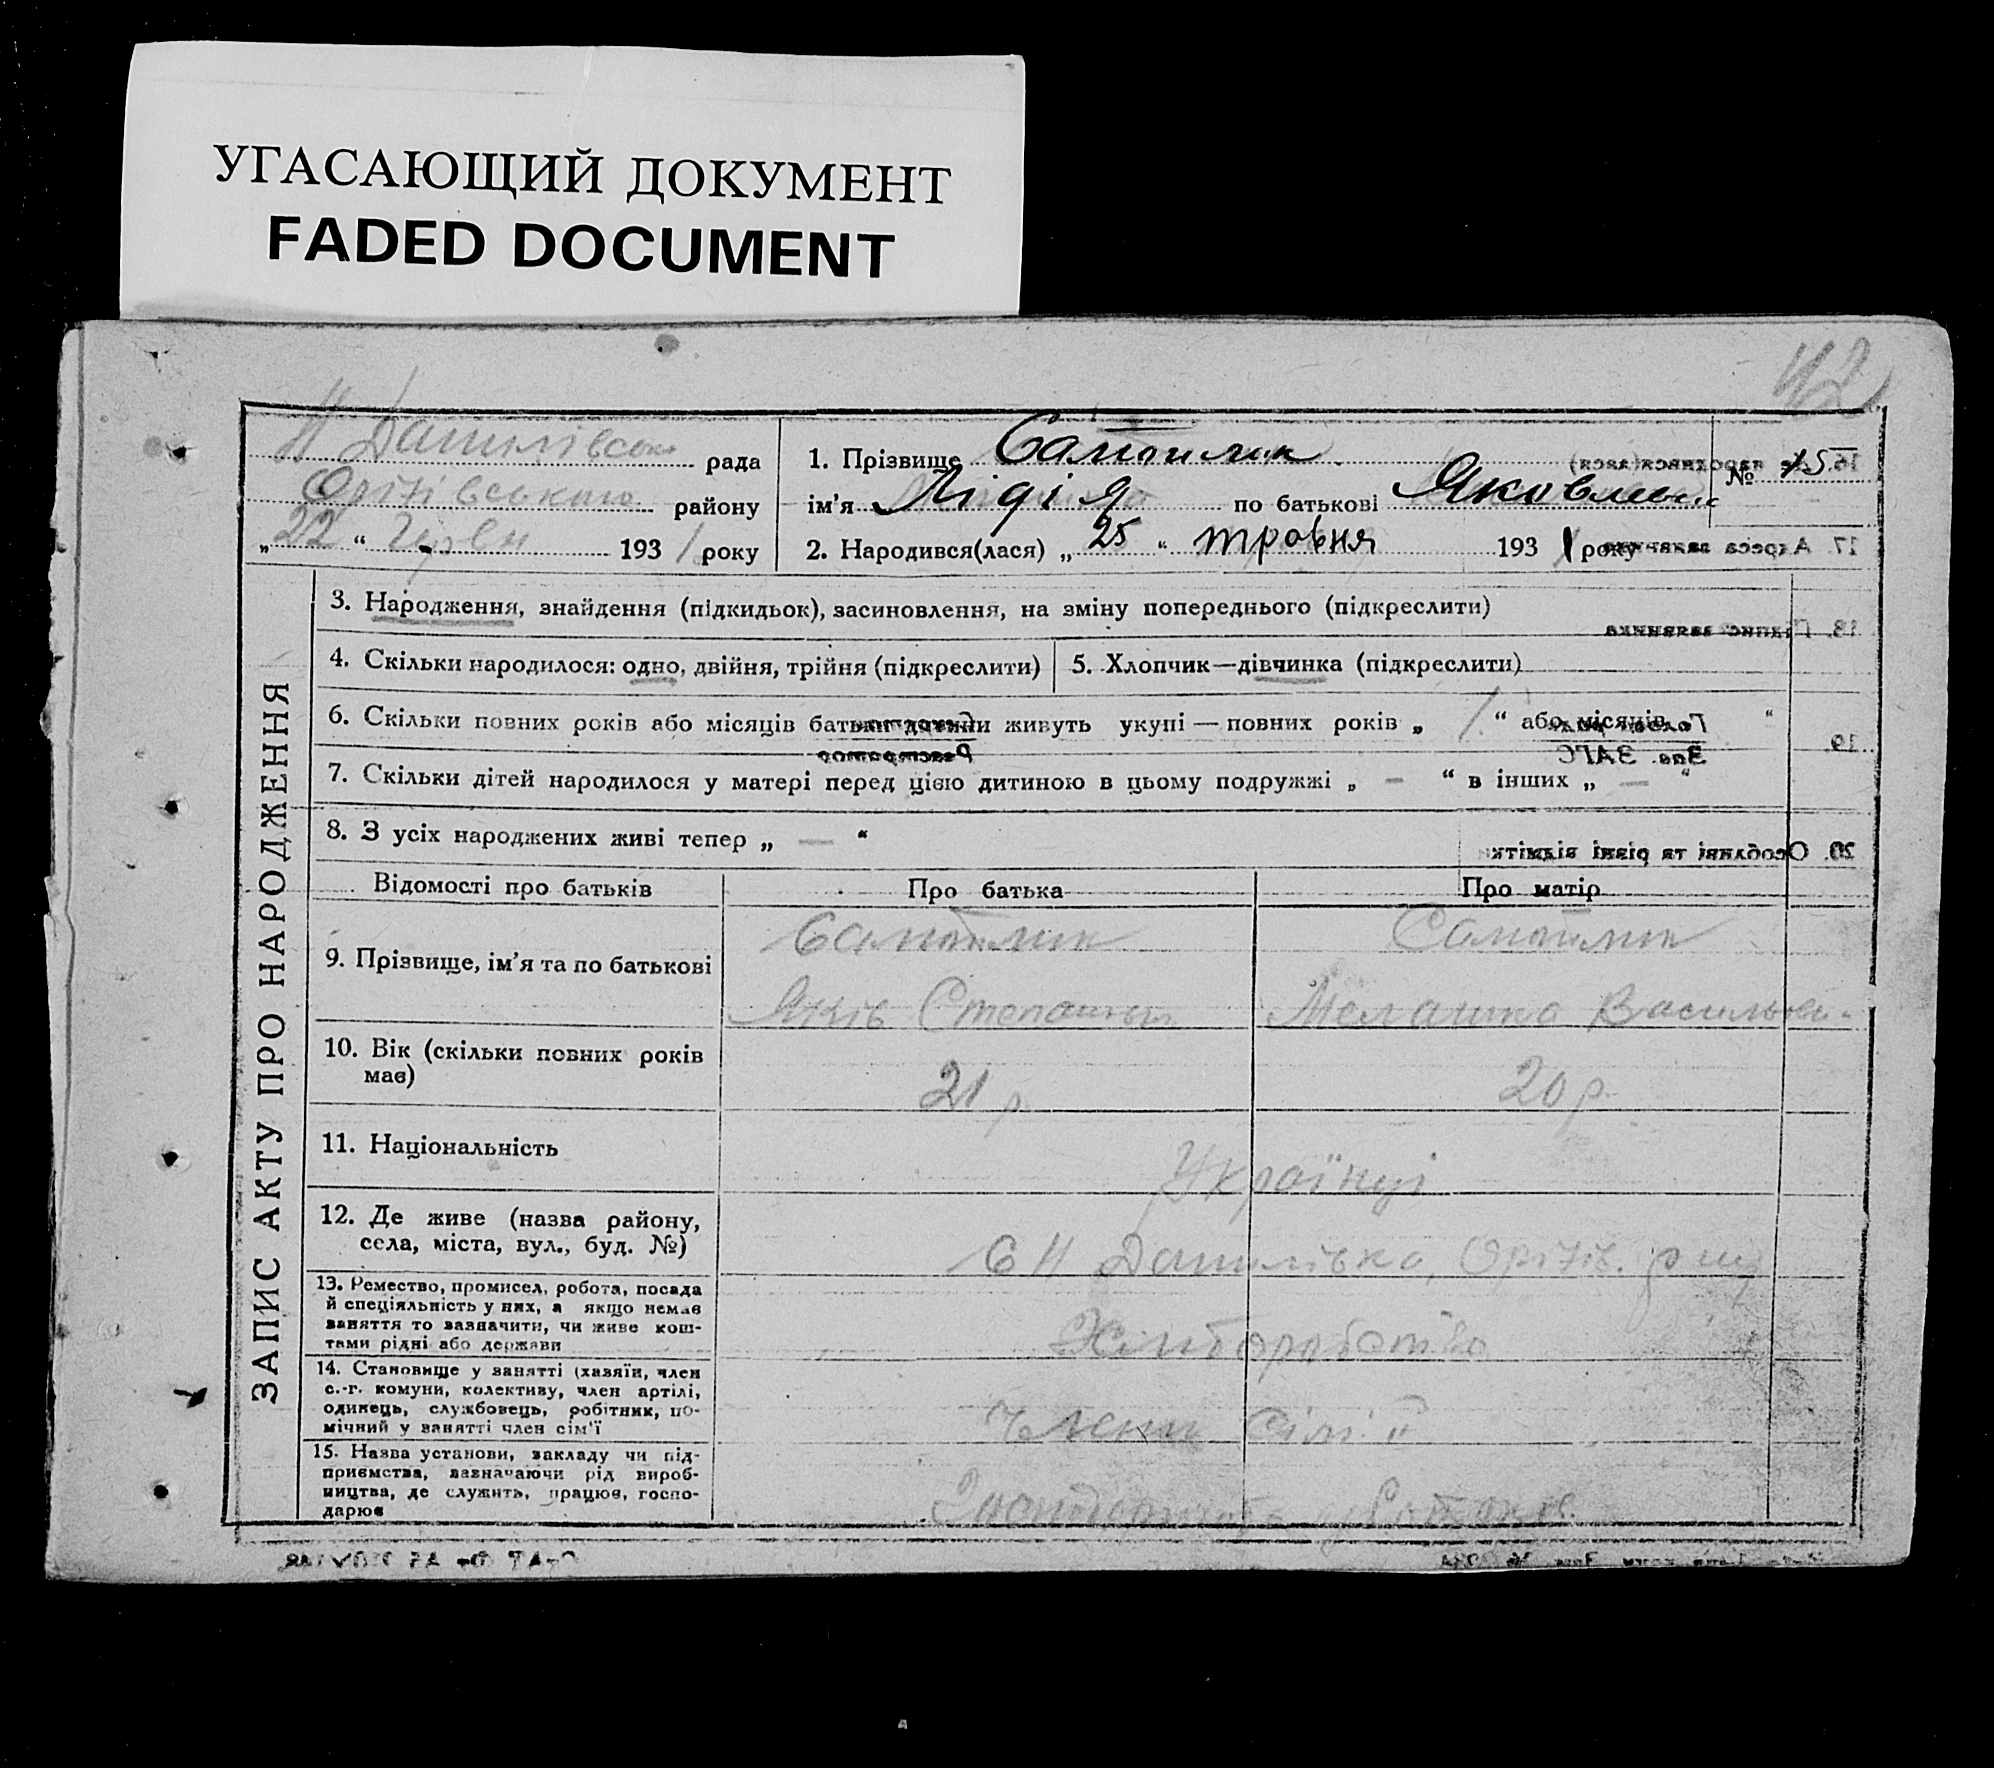 УГАСАЮЩИЙ ДОКУМЕНТ
FADED DOCUMENT
42
Н Данилівська рада
Оріхівського району
„22“ Червн 1931 року
1. Прізвище
ім’я Лідія по батькові Яковлевн
2. Народився(лася) „25“ травня 1931 року
№ 75
ЗАПИС АКТУ ПРО НАРОДЖЕННЯ
3. Народження, знайдення (підкидьок), засиновлення, на зміну попереднього (підкреслити)
4. Скільки народилося: одно, двійня, трійня (підкреслити)
5. Хлопчик—дівчинка (підкреслити)
6. Скільки повних років або місяців батьки дитини живуть укупі — повних років „1“ або місяців “
7. Скільки дітей народилося у матері перед цією дитиною в цьому подружжі „ — “ в інших „ — “
8. З усіх народжених живі тепер „ — “
Відомості про батьків
Про батька
Про матір
9. Прізвище, ім’я та по батькові
Яків Степанов
Мелашка Васильови-
10. Вік (скільки повних років
має)
21 р.
20 р.
11. Національність
Українці
12. Де живе (назва району,
села, міста, вул., буд. №)
С Н Данилівка, Оріхів. р
13. Ремество, промисел, робота, посада
й спеціяльність у них, а якщо немає
заняття то зазначити, чи живе кош-
тами рідні або держави
Хліборобство
14. Становище у занятті (хазяїн, член
с.-г. комуни, колективу, член артілі,
одинець, службовець, робітник, по-
мічний у занятті член сім’ї
Члени
15. Назва установи, закладу чи під-
приємства, зазначаючи рід вироб-
ництва, де служить, працює, госпо-
дарює
16. Де народився(лася)
17. Адреса заявника
18. Підпис заявника
19
Голова ради
Зав. ЗАГС
Секретар
Реєстратор
20. Особливі та різні відмітки